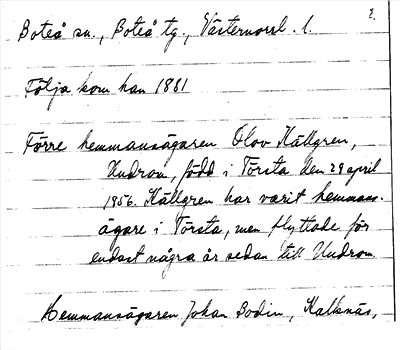 E.
Boteå sn., Boteå tg., Västernorrl. l.
Följa kom han 1881
Förre hemmansägaren Olov Hällgren,
Undrom, född i Törsta den 29 april
1956. Hällgren har varit hemmans-
ägare i Törsta, men flyttade för
endast några år sedan till Undrom.
Hemmansägaren Johan Bodin,